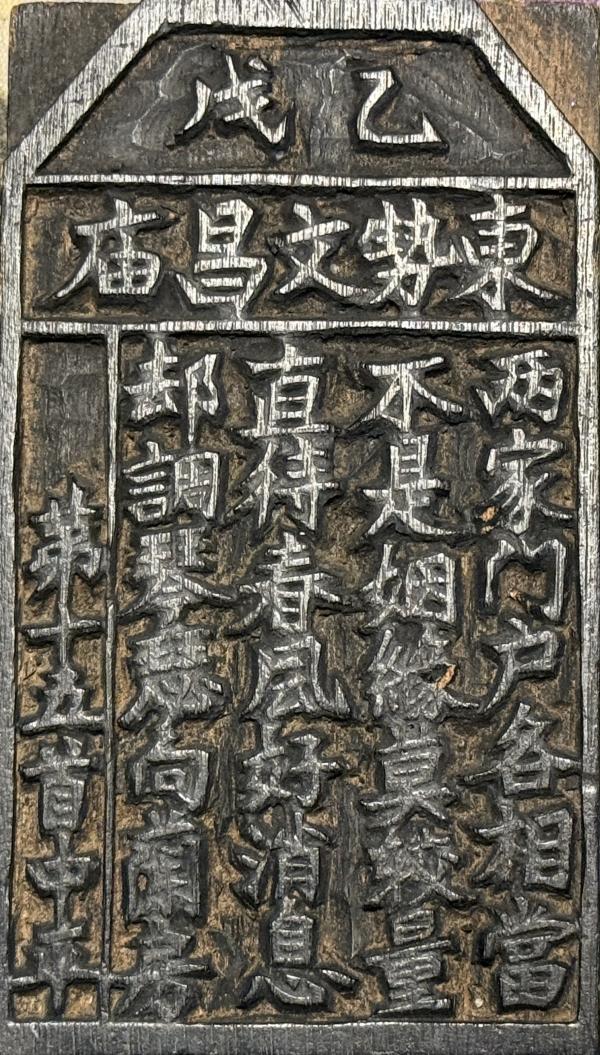 乙戊
東勢文昌庙
两家门户各相當
不是姻緣莫較量
直待春風好消息
却調琴瑟向蘭房
第十五首中平